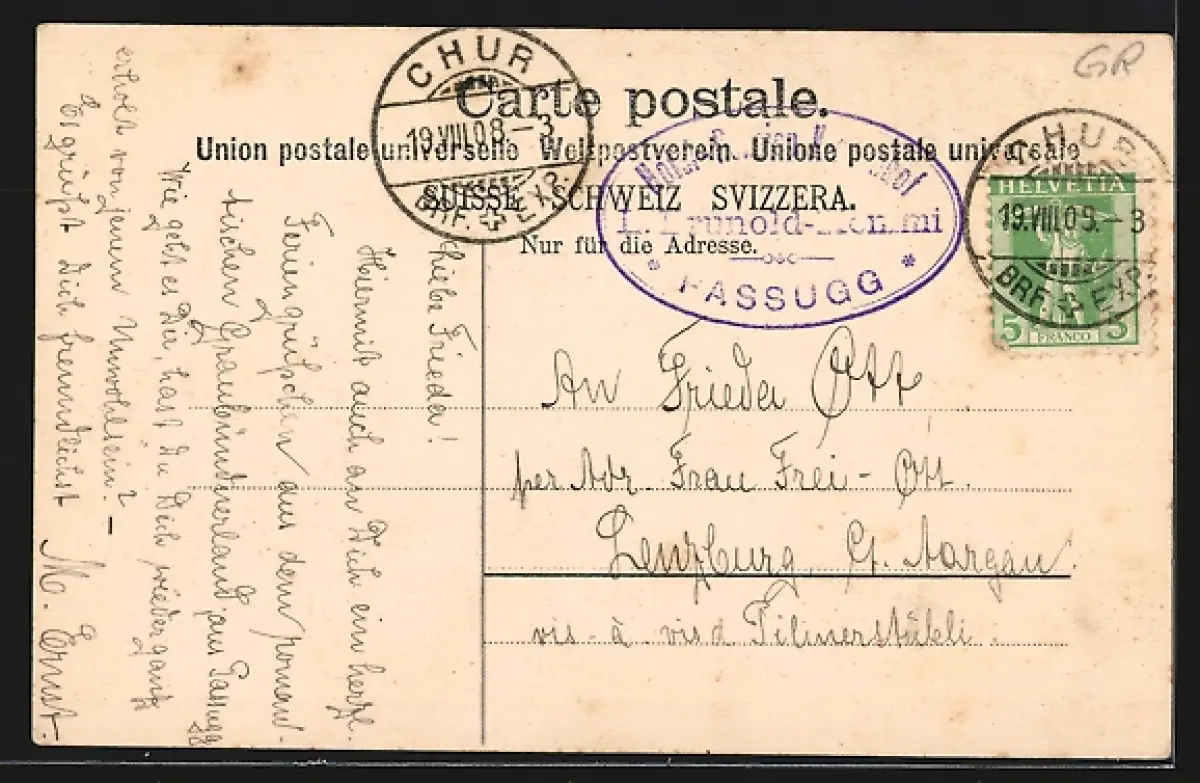 GR
CHUR
19.VIII.08.-3
BRF. EXP.
Carte postale.
Union postale universelle Weltpostverein Unione postale universale
SUISSE SCHWEIZ SVIZZERA.
Nur für die Adresse.
L. Brunold-
PASSUGG
CHUR
19.VIII.08.-3
BRF. EXP.
HELVETIA
5 FRANCO 5
An Frieda Ott
per Adr. Frau Frei-Ott.
Lenzburg, Ct. Aargau.
vis-à-vis d
Liebe Frieda!
Hiermit auch an Dich ein herzl.
Feriengrüsschen aus dem roman-
tischen Graubündnerland, aus Passugg
Wie geht es Dir, hast Du Dich wieder ganz
erholt von jenem Unwohlsein? -
Es grüsst Dich freundlichst
M. Ernst.